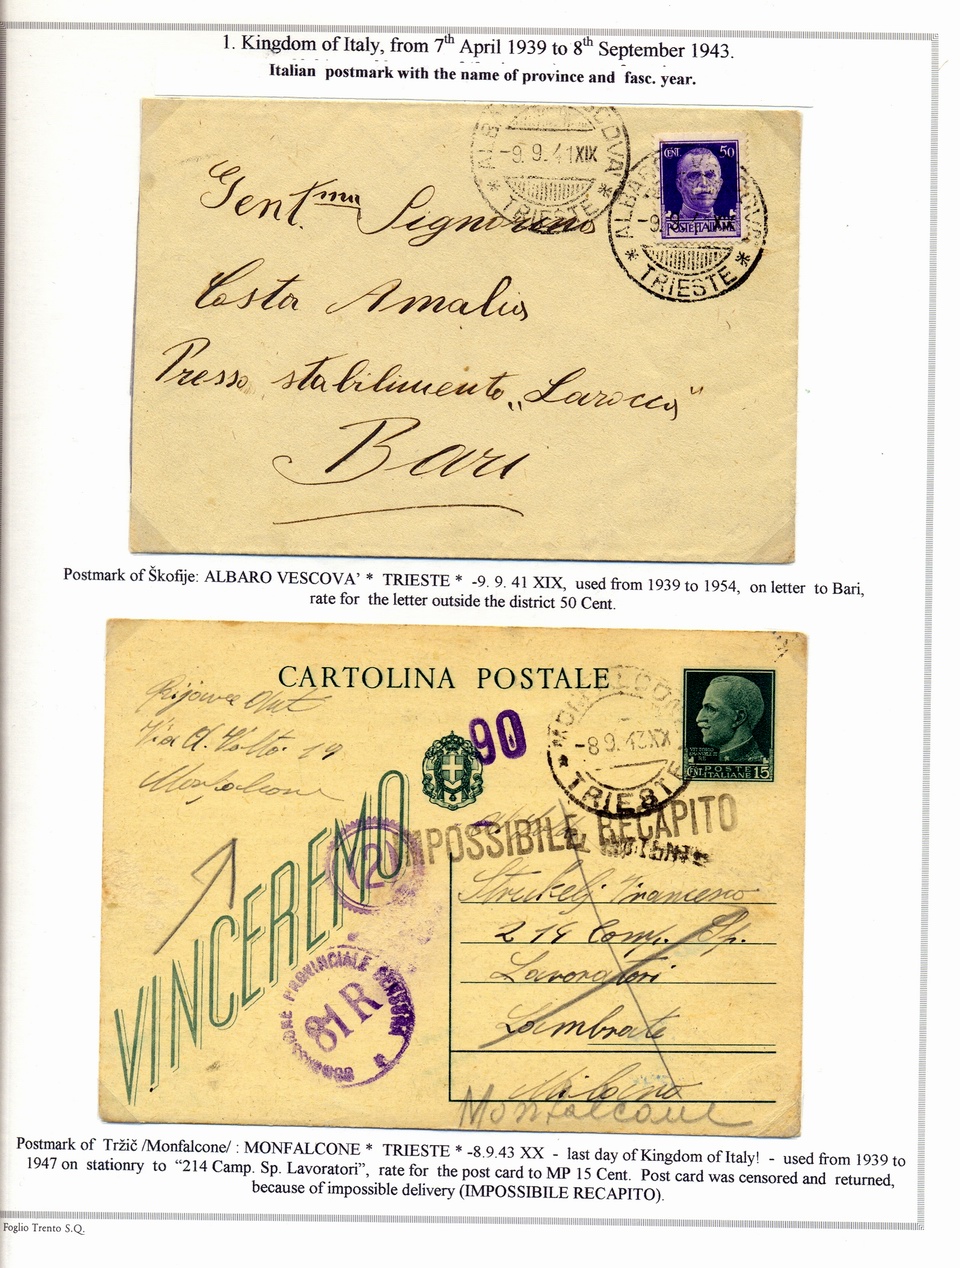 1. Kingdom of Italy, from 7th April 1939 to 8th September 1943.
Italian postmark with the name of province and fasc. year.
-9. 9. 41 XIX
* TRIESTE *
CENT. 50
POSTE ITALIANE
ALBARO VESCOVA
* TRIESTE *
Gent.ma Signorina
Costa Amalia
Presso stabilimento „Larocca"
Bari
Postmark of Škofije: ALBARO VESCOVA' * TRIESTE * -9. 9. 41 XIX, used from 1939 to 1954, on letter to Bari,
rate for the letter outside the district 50 Cent.
CARTOLINA POSTALE
Via A. Volta 19
Monfalcone
90
MONFALCONE
-8 9. 43 XX
* TRIESTE
POSTE
CENT. ITALIANE 15
VINCEREMO
IMPOSSIBILE RECAPITO
AL MITTENTE
2
COMMISSIONE PROVINCIALE CENSURA
81 R
Strukelj Francesco
214 Comp. Sp.
Lavoratori
Lambrate
Milano
Monfalcone
Postmark of Tržič /Monfalcone/ : MONFALCONE * TRIESTE * -8.9.43 XX - last day of Kingdom of Italy! - used from 1939 to
1947 on stationry to “214 Camp. Sp. Lavoratori”, rate for the post card to MP 15 Cent. Post card was censored and returned,
because of impossible delivery (IMPOSSIBILE RECAPITO).
Foglio Trento S.Q.